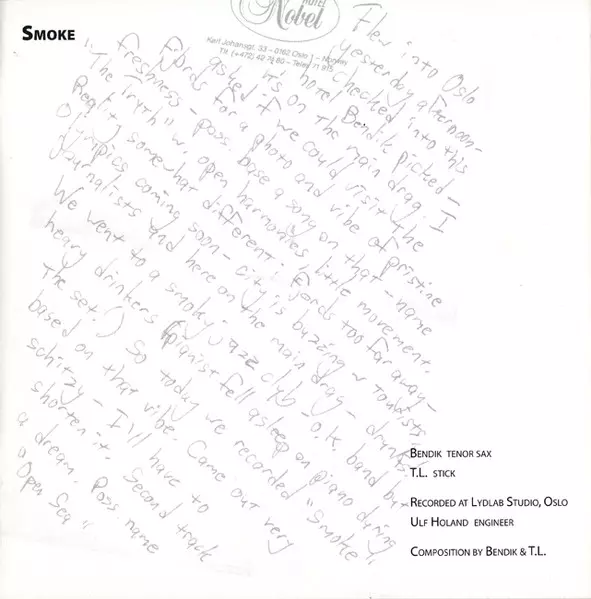 SMOKE
HOTEL
Nobel
Karl Johansgt. 33 – 0162 Oslo 1 – Norway
Flew into Oslo
yesterday afternoon –
checked into this
hotel Bendik picked –
it's on The main drag. I
asked if we could visit The
fjords for a photo and vibe of pristine
freshness – poss. base a song on that – name
"The Truth" w. open harmonies, little movement.
Reality somewhat different: fjords too far away –
Olympics coming soon – city is buzzing w tourists
journalists and here on the main drag – drunks.
We went to a smokey jazz club – O.K. band
heavy drinkers (pianist fell asleep on piano during
The set.) So today we recorded "Smoke"
based on that vibe. Came out very
schitzy – I'll have to
shorten it. Second track
a dream. Poss. name
"Open Sea"
BENDIK TENOR SAX
T.L. STICK
RECORDED AT LYDLAB STUDIO, OSLO
ULF HOLAND ENGINEER
COMPOSITION BY BENDIK & T.L.